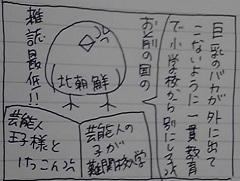 巨乳のバカが外に出て
こないように一貫教育
で小学校から別にしろ
お前の国の
北朝鮮
雑誌最低!!
芸能人の
子が
難関
学
芸能人
王子様と
けっこん